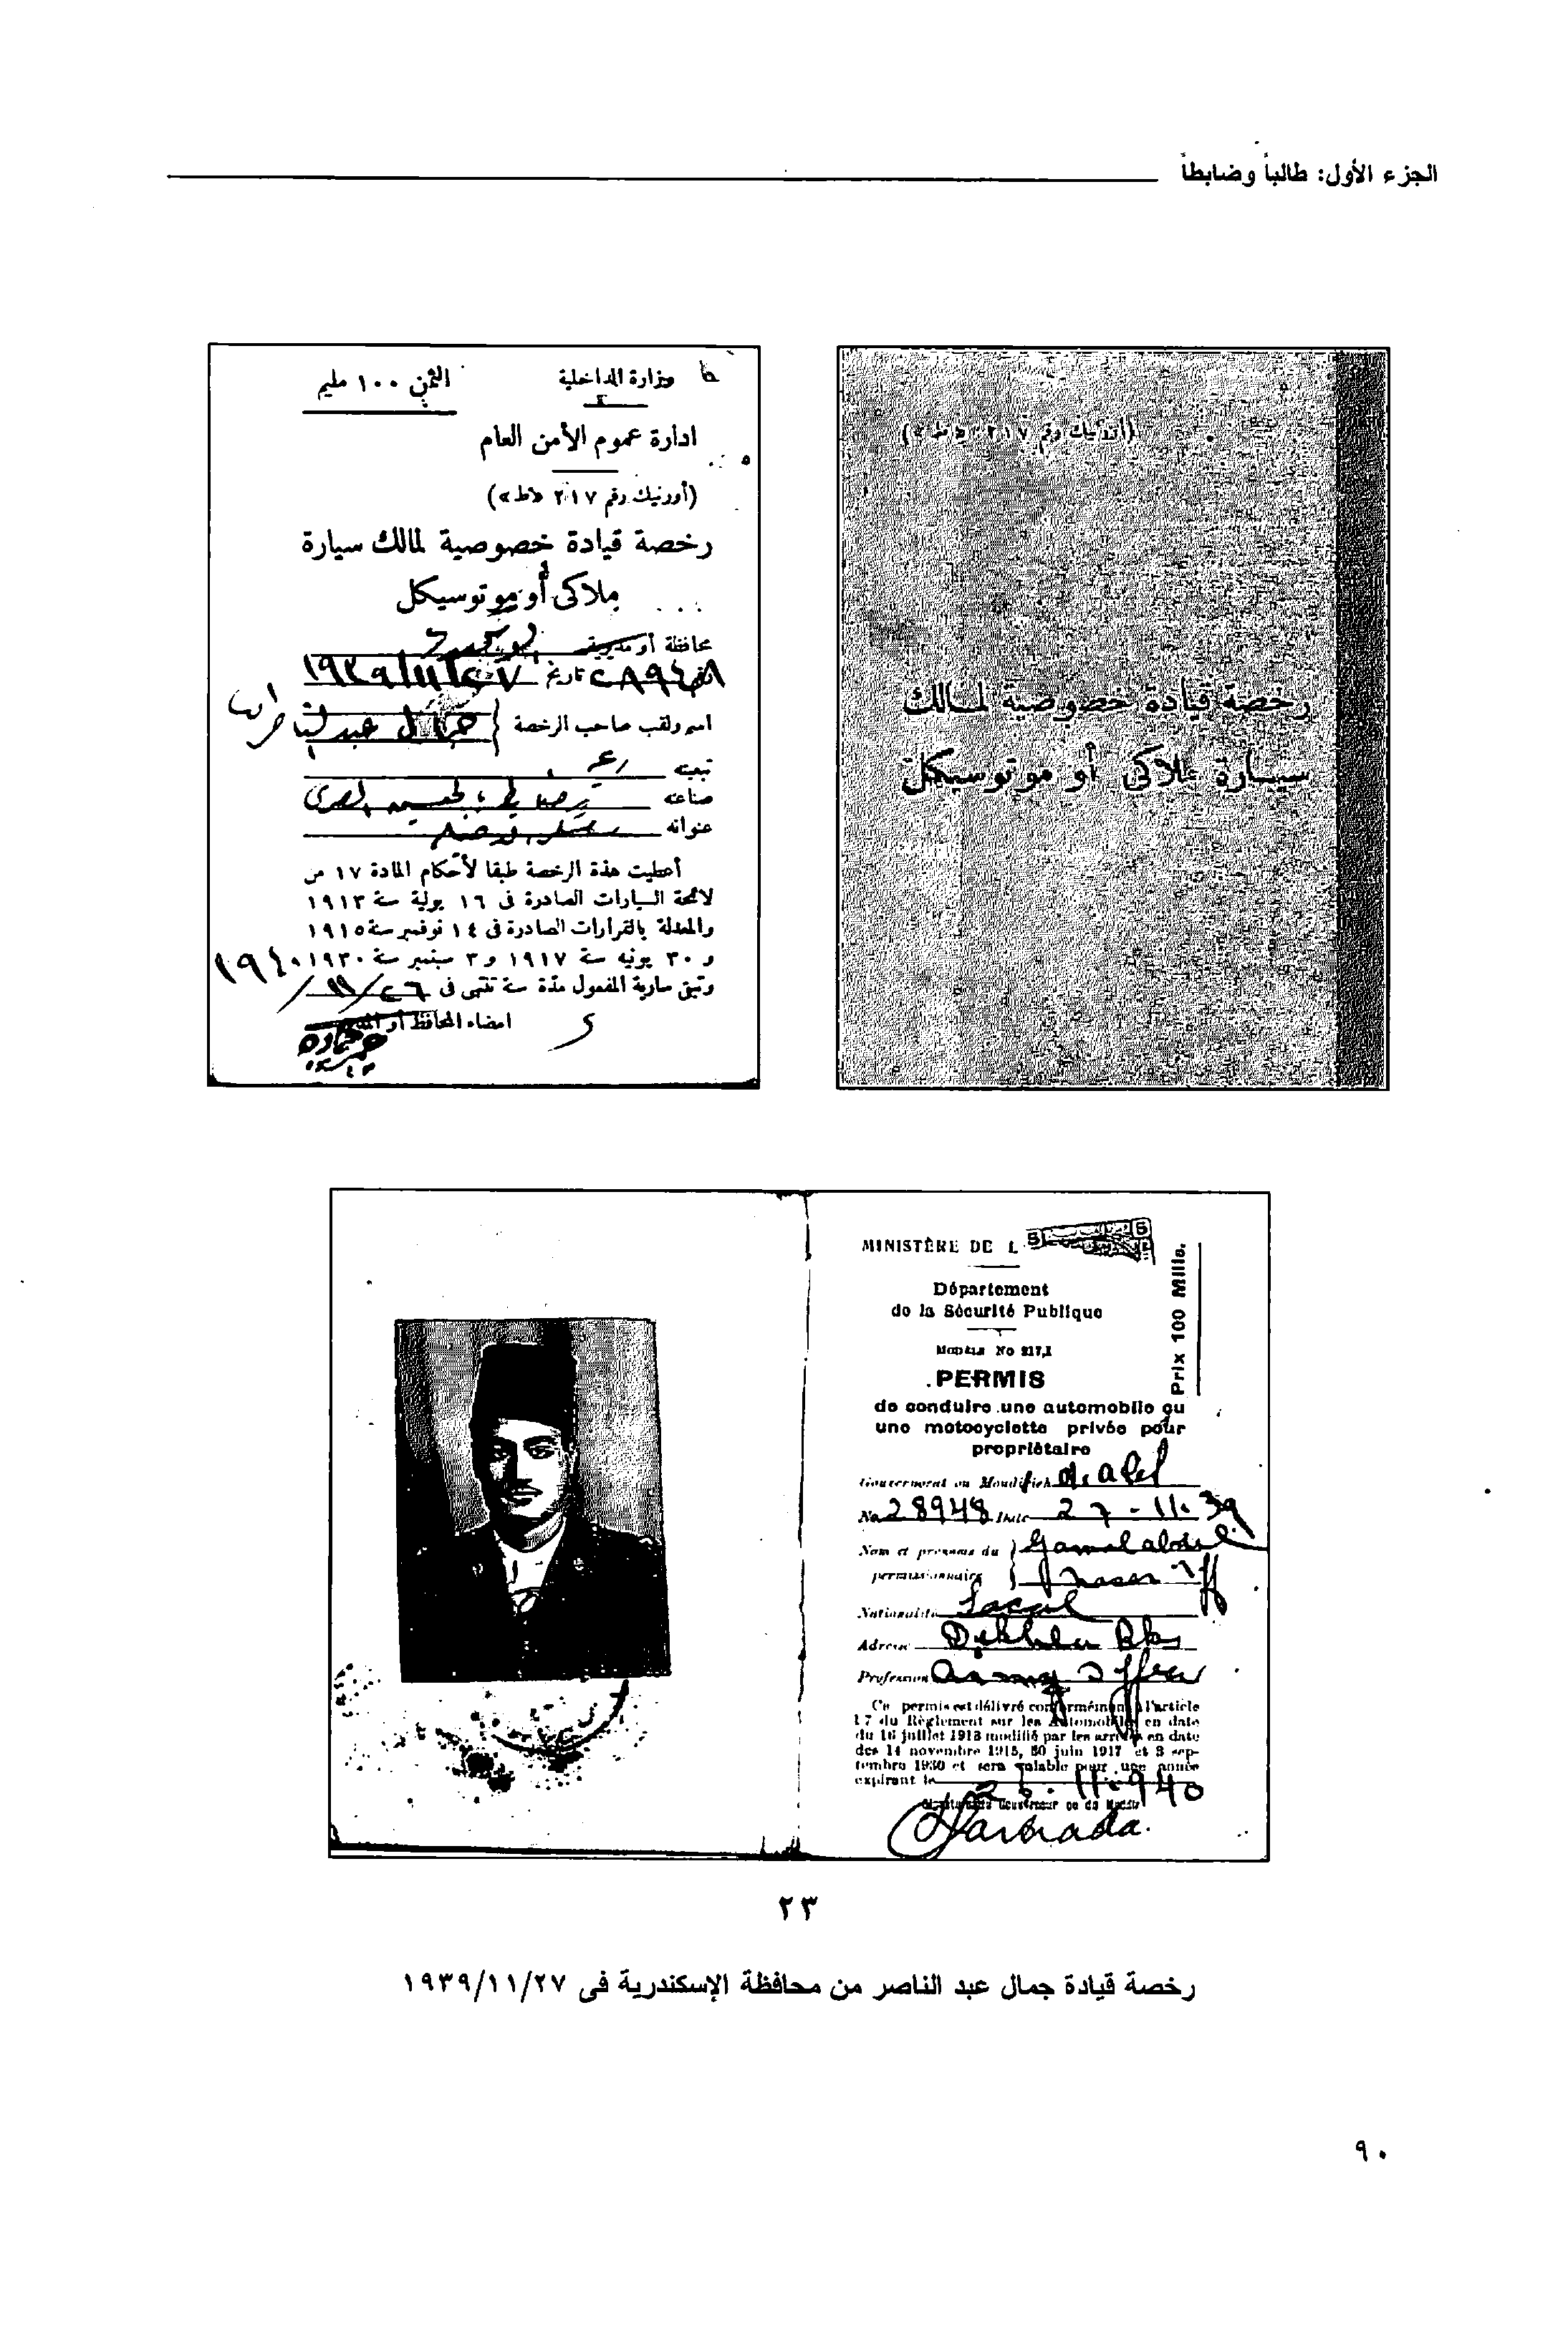 الجزء الأول: طالباً وضابطاً
(أورنيك رقم ٢١٧ «ط»)
رخصة قيادة خصوصية لمالك
سيارة ملاكى أو موتوسيكل
وزارة الداخلية
الثمن ١٠٠ مليم
ادارة عموم الأمن العام
(أورنيك رقم ٢١٧ «ط»)
رخصة قيادة خصوصية لمالك سيارة
ملاكى أو موتوسيكل
محافظة أو مديرية
٢٨٩٤٨ تاريخ ٢٧/١١/١٩٣٩
اسم ولقب صاحب الرخصة جمال عبد الناصر
تبعيته
صناعته ضابط بالجيش المصرى
عنوانه
أعطيت هذه الرخصة طبقا لأحكام المادة ١٧ من
لائحة السيارات الصادرة فى ١٦ يولية سنة ١٩١٣
والمعدلة بالقرارات الصادرة فى ١٤ نوفمبر سنة ١٩١٥
و ٣٠ يونيه سنة ١٩١٧ و ٣ سبتمبر سنة ١٩٣٠
وتبق سارية المفعول مدة سنة تنتهى فى ٢٦/١١/١٩٤٠
امضاء المحافظ أو المدير
حماده
MINISTÈRE DE L
Prix 100 Mills.
Département
de la Sécurité Publique
No 217,1
PERMIS
de conduire une automobile ou
une motocyclette privée pour
propriétaire
Gouvernorat ou Moudirieh
No 28948 Date 27-11-39
Nom et prénoms du Gamal abdel
permissionnaire Nasser Eff
Nationalité Local
Adresse Dekhela
Profession Army Officer
Ce permis est délivré conformément à l'article
17 du Règlement sur les Automobiles en date
du 16 juillet 1913 modifié par les arrêtés en date
des 14 novembre 1915, 30 juin 1917 et 3 sep-
tembre 1930 et sera valable pour une année
expirant le 26-11-940
Hamada
٢٣
رخصة قيادة جمال عبد الناصر من محافظة الإسكندرية فى ٢٧/١١/١٩٣٩
٩٠